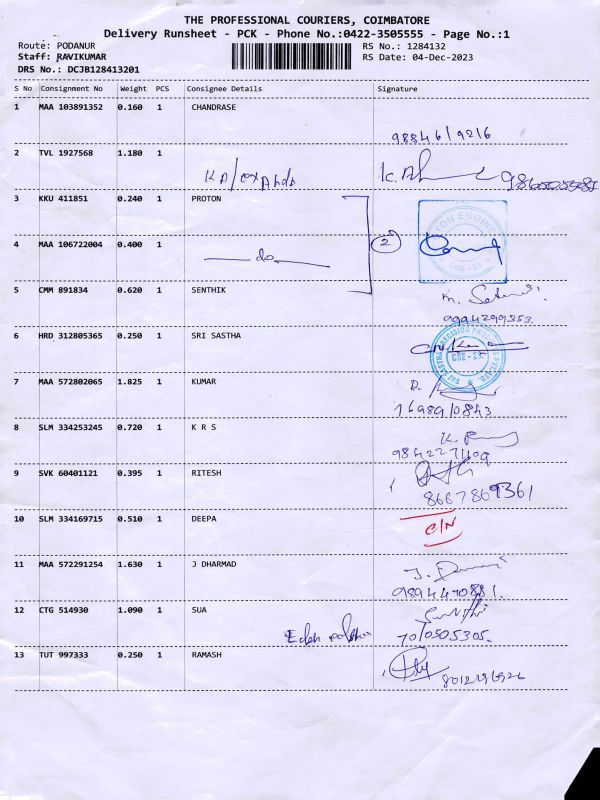 THE PROFESSIONAL COURIERS, COIMBATORE
Delivery Runsheet - PCK - Phone No.:0422-3505555 - Page No.:1
Route: PODANUR RS No.: 1284132
Staff: RAVIKUMAR RS Date: 04-Dec-2023
DRS No.: DCJB128413201
S No Consignment No Weight PCS Consignee Details Signature
1 MAA 103891352 0.160 1 CHANDRASE
9884619216
2 TVL 1927568 1.180 1
3 KKU 411851 0.240 1 PROTON
4 MAA 106722004 0.400 1 do 2
5 CMM 891834 0.620 1 SENTHIK
9994299353
6 HRD 312805365 0.250 1 SRI SASTHA
CBE - 23
7 MAA 572802065 1.825 1 KUMAR
8 SLM 334253245 0.720 1 K R S
9842271109
9 SVK 60401121 0.395 1 RITESH
8667869361
10 SLM 334169715 0.510 1 DEEPA C/N
11 MAA 572291254 1.630 1 J DHARMAD
9894470881.
12 CTG 514930 1.090 1 SUA
7010505305.
13 TUT 997333 0.250 1 RAMASH